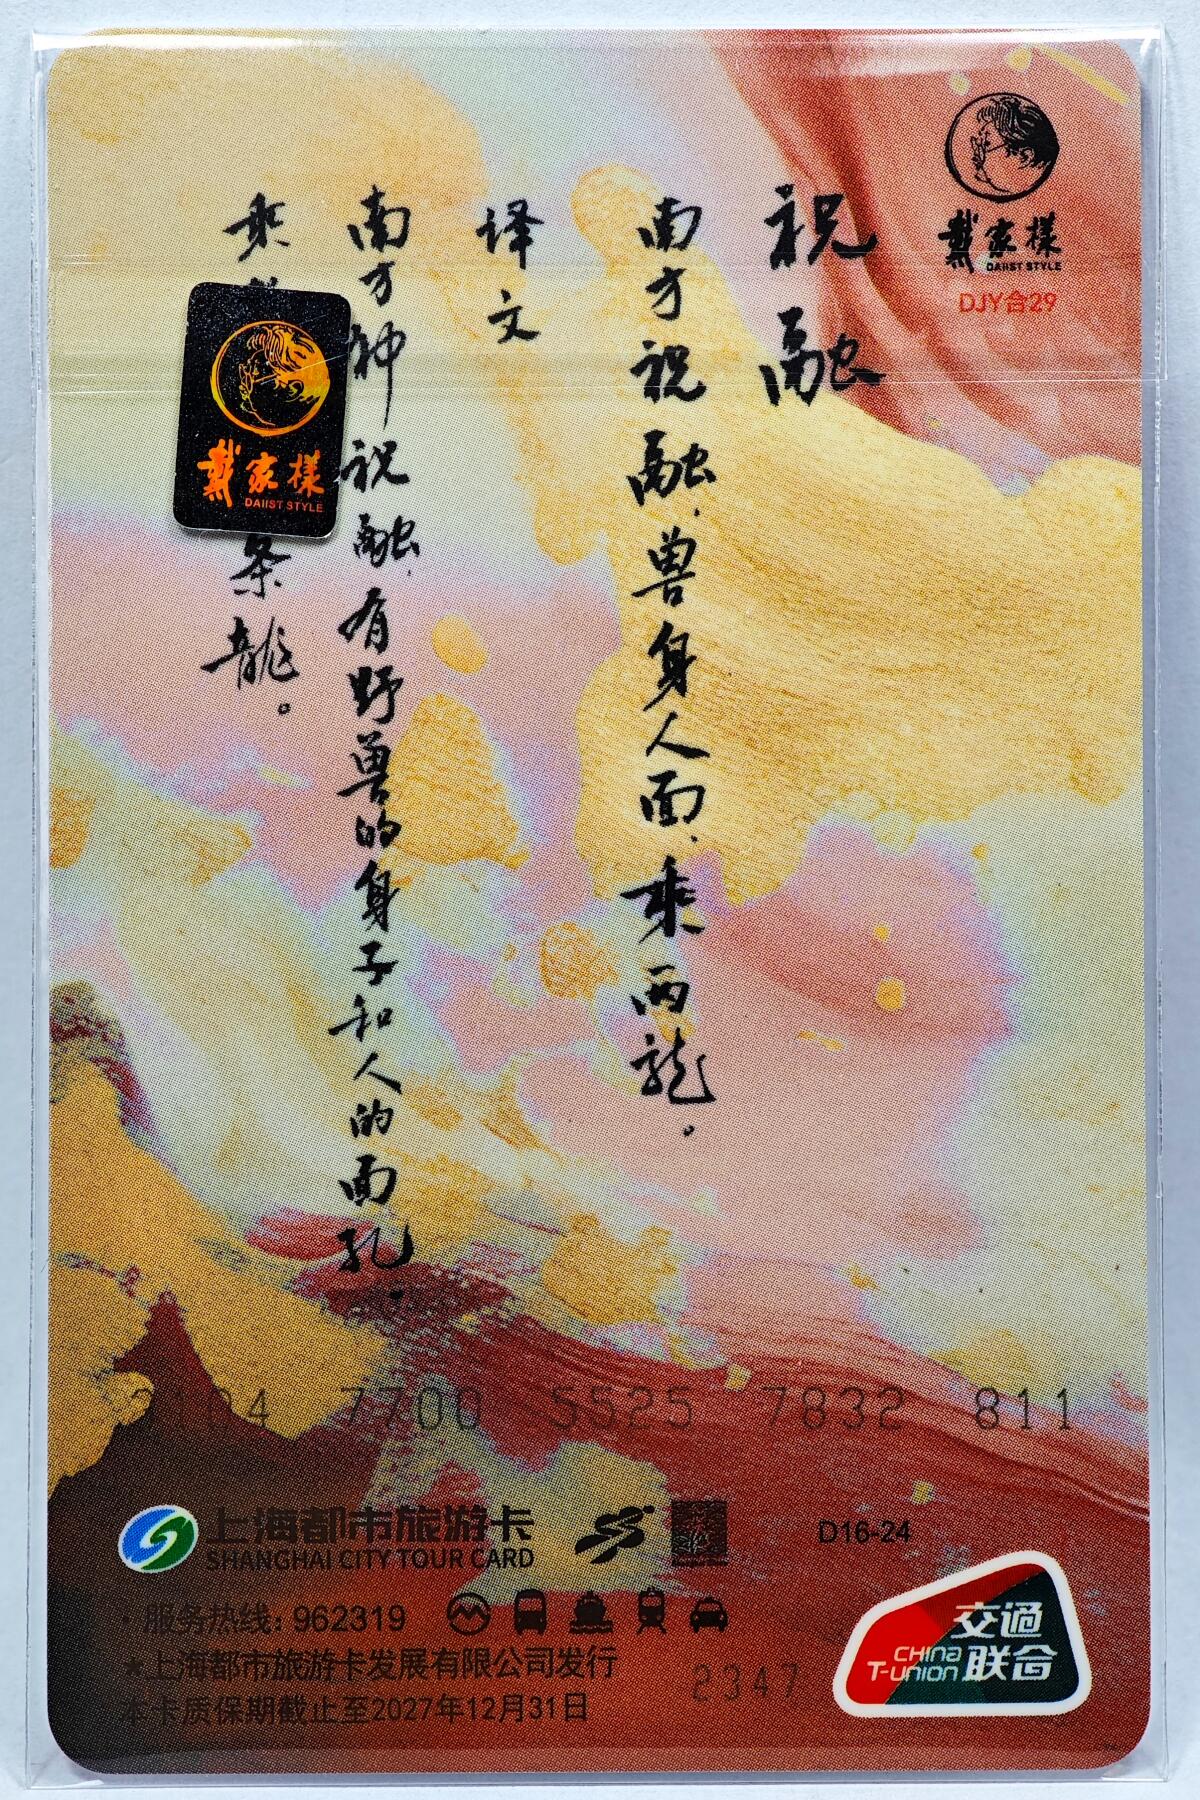 戴家樣
DAIIST STYLE
DJY合29
祝融
南方祝融,兽身人面,乘两龍。
译文
南方神祝融,有野兽的身子和人的面孔,
乘
条龍。
戴家樣
DAIIST STYLE
3104 7700 5525 7832 811
上海都市旅游卡
SHANGHAI CITY TOUR CARD
D16-24
·服务热线: 962319
★上海都市旅游卡发展有限公司发行
本卡质保期截止至2027年12月31日
2347
交通
联合
CHINA
T-UNION